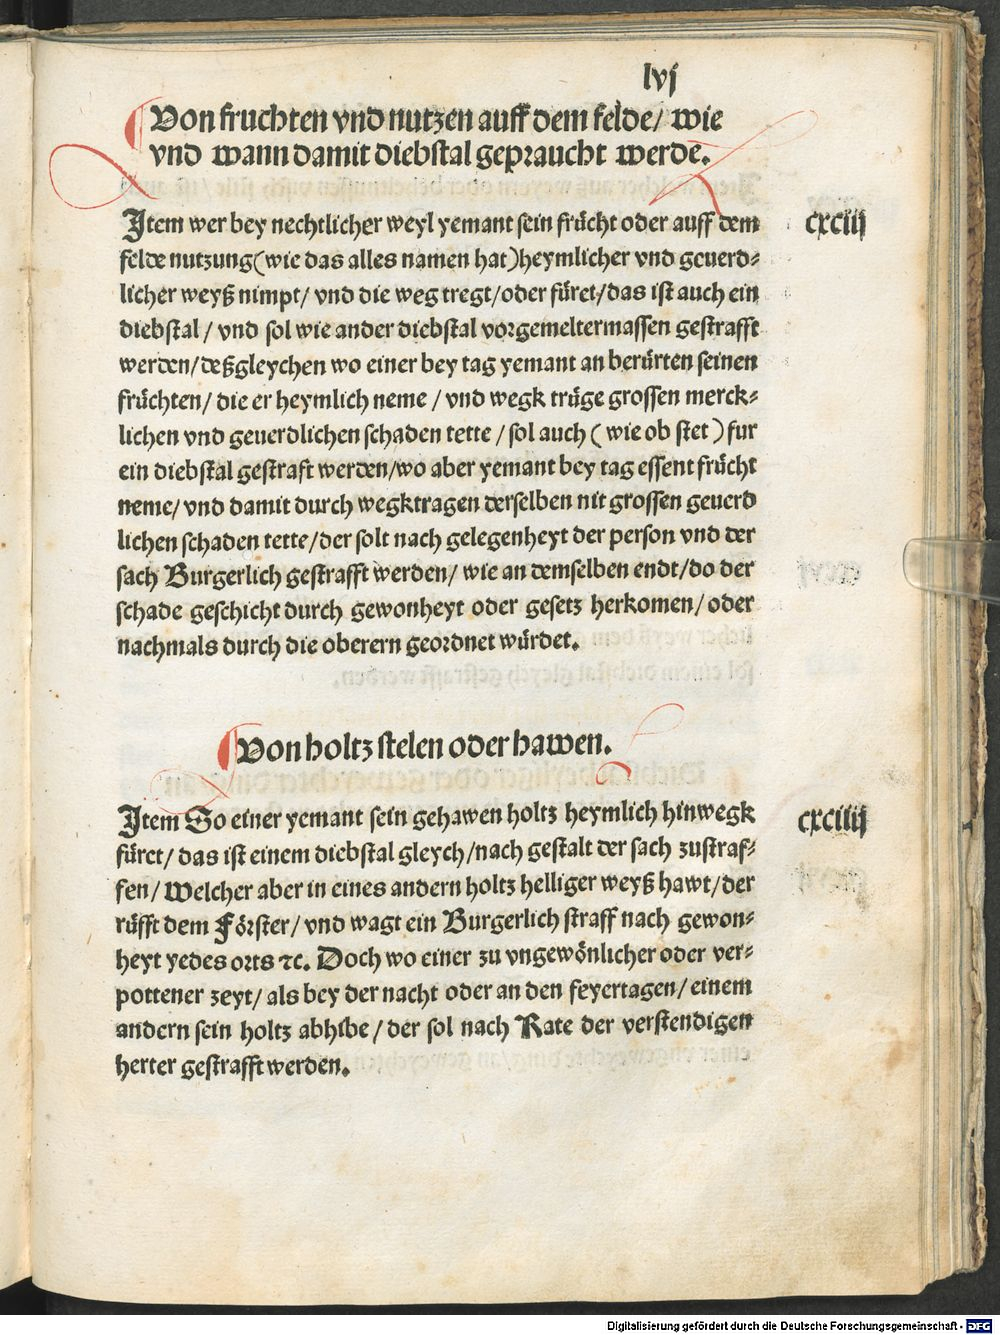 lvj
Von fruchten vnd nutzen auff dem felde/ wie
vnd wann damit diebstal gepraucht werde.
Item wer bey nechtlicher weyl yemant sein frücht oder auff dem
felde nutzung(wie das alles namen hat)heymlicher vnd geuerd-
licher weyß nimpt/ vnd die weg tregt/oder füret/das ist auch ein
diebstal/ vnd sol wie ander diebstal vorgemeltermassen gestrafft
werden/deßgleychen wo einer bey tag yemant an berürten seinen
früchten/ die er heymlich neme/ vnd wegk trüge grossen merck-
lichen vnd geuerdlichen schaden tette/ sol auch (wie ob stet) fur
ein diebstal gestraft werden/wo aber yemant bey tag essent frücht
neme/ vnd damit durch wegktragen derselben nit grossen geuerd
lichen schaden tette/der solt nach gelegenheyt der person vnd der
sach Burgerlich gestrafft werden/ wie an demselben endt/do der
schade geschicht durch gewonheyt oder gesetz herkomen/ oder
nachmals durch die oberern geordnet würdet.
cxciij
Von holtz stelen oder hawen.
Item So einer yemant sein gehawen holtz heymlich hinwegk
füret/ das ist einem diebstal gleych/nach gestalt der sach zustraf-
fen/ Welcher aber in eines andern holtz helliger weyß hawt/der
rüfft dem Förster/ vnd wagt ein Burgerlich straff nach gewon-
heyt yedes orts ⁊c. Doch wo einer zu vngewönlicher oder ver-
pottener zeyt/ als bey der nacht oder an den feyertagen/ einem
andern sein holtz abhibe/ der sol nach Rate der verstendigen
herter gestrafft werden.
cxciiij
Digitalisierung gefördert durch die Deutsche Forschungsgemeinschaft - DFG